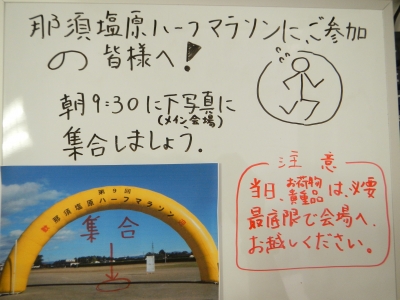 那須塩原ハーフマラソンに、ご参加
の皆様へ!
朝9:30に下写真に
(メイン会場)
集合しましょう.
注意
当日、お荷物
貴重品は、必要
最底限で会場へ、
お越しください。
第9回
那須塩原ハーフマラソン
集合